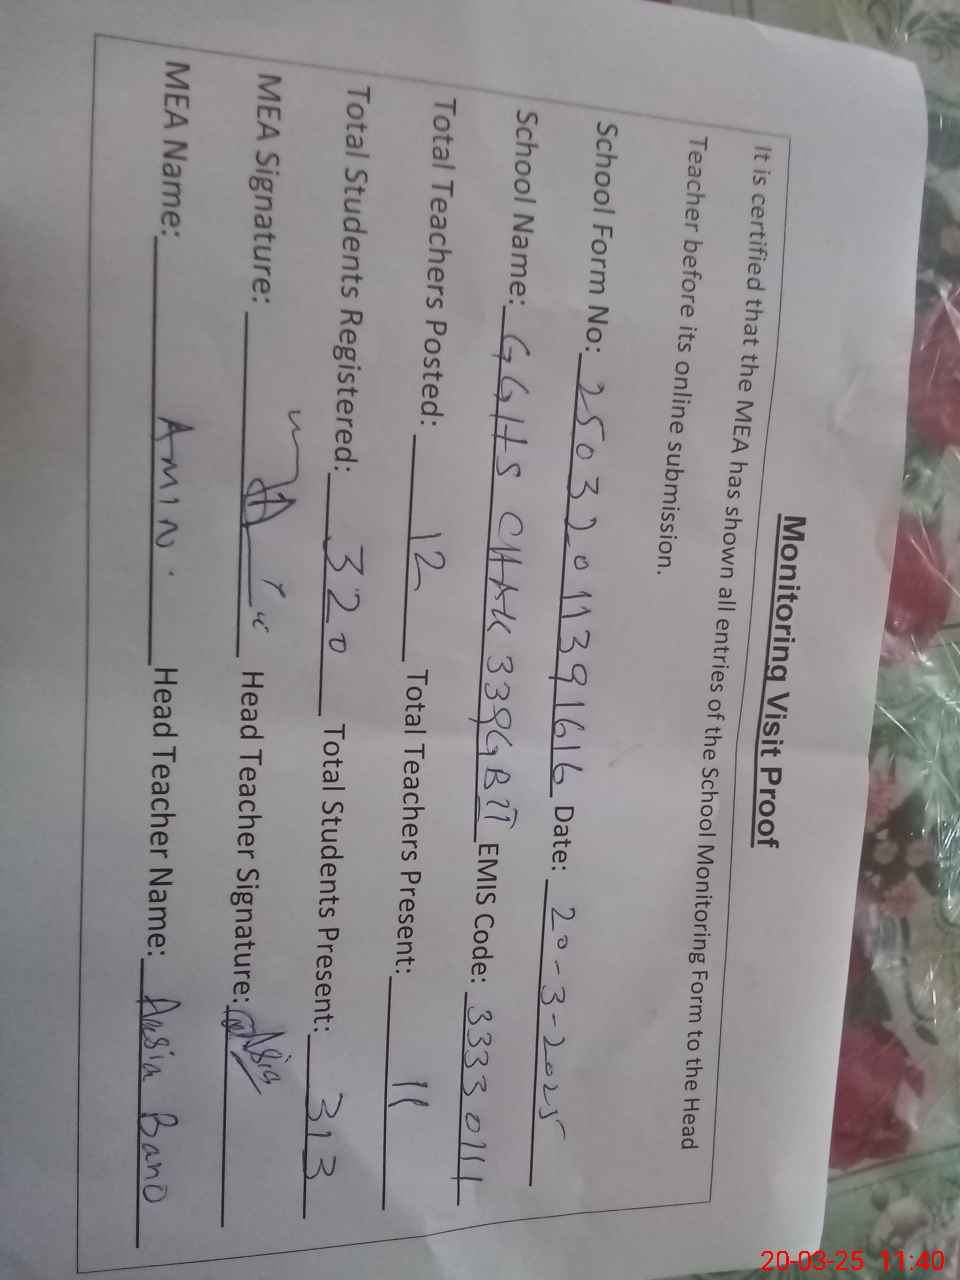 Monitoring Visit Proof
It is certified that the MEA has shown all entries of the School Monitoring Form to the Head
Teacher before its online submission.
School Form No: 25032011391616 Date: 20-3-2025
School Name: GGHS CHAK 339GB EMIS Code: 33330111
Total Teachers Posted: 12 Total Teachers Present: 11
Total Students Registered: 320 Total Students Present: 313
MEA Signature: Head Teacher Signature: Asia
MEA Name: AMIN. Head Teacher Name: Aasia Bano
20-03-25 11:40